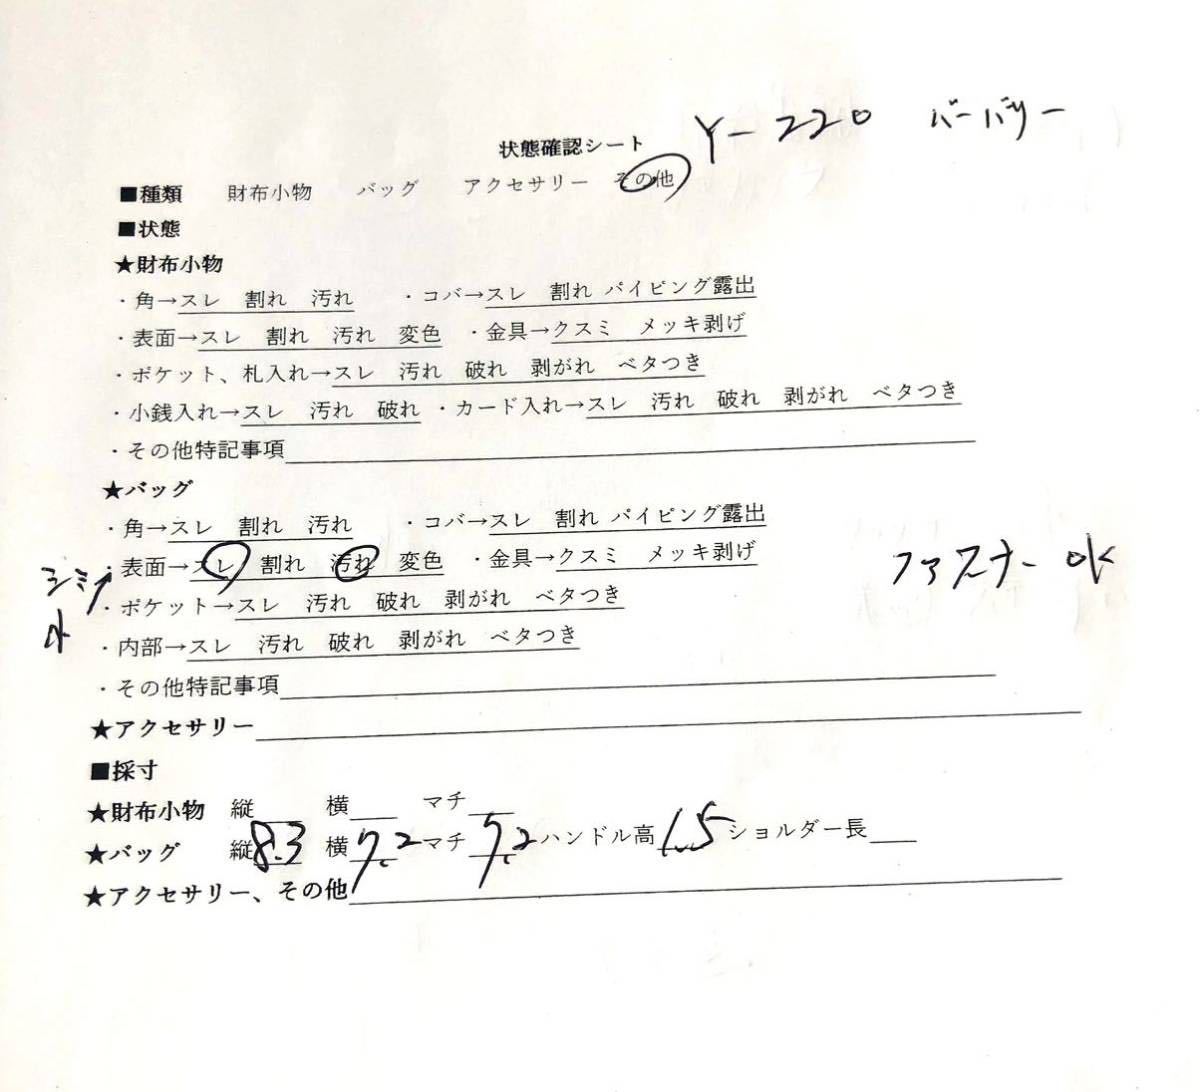 Y-220 バーバリー
状態確認シート
■種類 財布小物 バッグ アクセサリー その他
■状態
★財布小物
・角→スレ 割れ 汚れ ・コバ→スレ 割れ パイピング露出
・表面→スレ 割れ 汚れ 変色 ・金具→クスミ メッキ剥げ
・ポケット、札入れ→スレ 汚れ 破れ 剥がれ ベタつき
・小銭入れ→スレ 汚れ 破れ ・カード入れ→スレ 汚れ 破れ 剥がれ ベタつき
・その他特記事項
★バッグ
・角→スレ 割れ 汚れ ・コバ→スレ 割れ パイピング露出
・表面→スレ 割れ 汚れ 変色 ・金具→クスミ メッキ剥げ
ファスナーOK
シミ
小
・ポケット→スレ 汚れ 破れ 剥がれ ベタつき
・内部→スレ 汚れ 破れ 剥がれ ベタつき
・その他特記事項
★アクセサリー
■採寸
★財布小物 縦 横 マチ
★バッグ 縦8.3 横7.2 マチ7.2 ハンドル高1.5 ショルダー長
★アクセサリー、その他